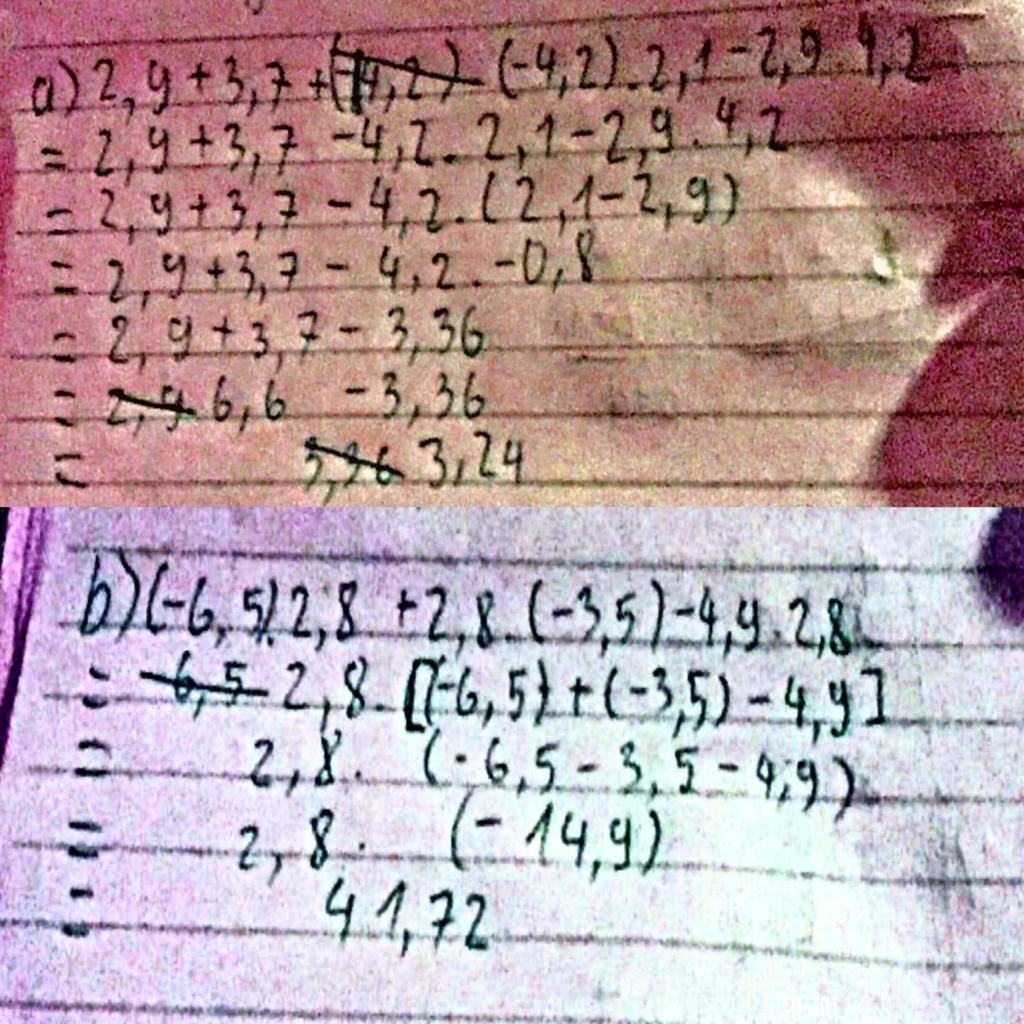 a) 2,9 + 3,7 + (-4,2) (-4,2) . 2,1 - 2,9 . 4,2
= 2,9 + 3,7 - 4,2 . 2,1 - 2,9 . 4,2
= 2,9 + 3,7 - 4,2 . (2,1 - 2,9)
= 2,9 + 3,7 - 4,2 . -0,8
= 2,9 + 3,7 - 3,36
= 2,9 6,6 - 3,36
= 3,36 3,24
b) (-6,5) . 2,8 + 2,8 . (-3,5) - 4,9 . 2,8
= 6,5 2,8 . [(-6,5) + (-3,5) - 4,9]
= 2,8 . (-6,5 - 3,5 - 4,9)
= 2,8 . (-14,9)
= 41,72